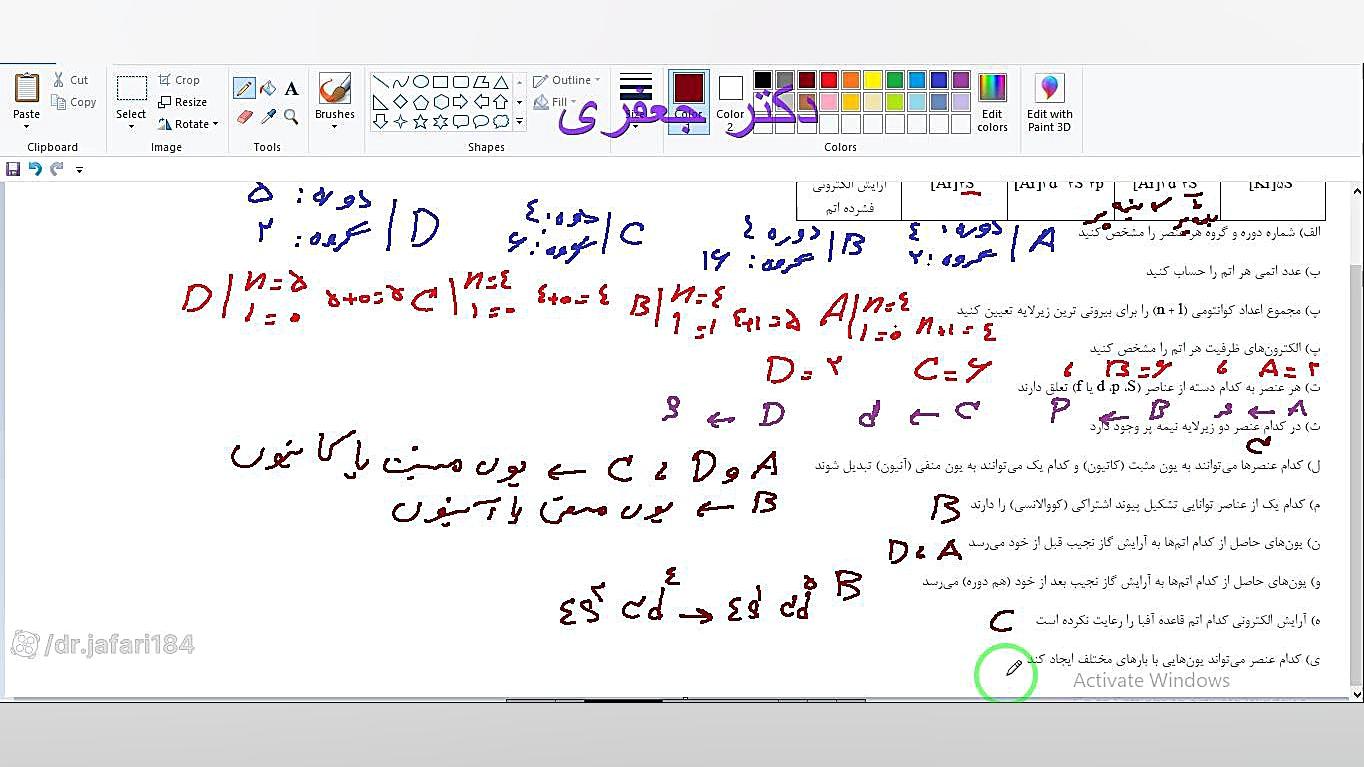 Paste
Cut
Copy
Clipboard
Select
Crop
Resize
Rotate
Image
Tools
Brushes
Shapes
Outline
Fill
Size
Color 1
Color 2
Edit colors
Colors
Edit with Paint 3D
دکتر جعفری
آرایش الکترونی
فشرده اتم
[Ar]۴S
[Kr]۵S
الف) شماره دوره و گروه هر عنصر را مشخص کنید
A دوره: ٤ گروه: ۲
B دوره ٤ گروه: ۱۶
C دوره: ٤ گروه: ۶
D دوره: ۵ گروه: ۲
ب) عدد اتمی هر اتم را حساب کنید
پ) مجموع اعداد کوانتومی (n + l) را برای بیرونی ترین زیرلایه تعیین کنید
A n=٤ l=۰ n+l=٤
B n=٤ l=۱ ٤+۱=۵
C n=٤ l=۰ ٤+۰=٤
D n=۵ l=۰ ۵+۰=۵
پ) الکترون‌های ظرفیت هر اتم را مشخص کنید
A=۲ ، B=۶ ، C=۶ D=۲
ت) هر عنصر به کدام دسته از عناصر (S، p، d یا f) تعلق دارند
A → s B → P C → d D → s
ث) در کدام عنصر دو زیرلایه نیمه پر وجود دارد
C
ل) کدام عنصرها می‌توانند به یون مثبت (کاتیون) و کدام یک می‌توانند به یون منفی (آنیون) تبدیل شوند
A و D ، C ← یون مثبت یا کاتیون
B ← یون منفی یا آنیون
م) کدام یک از عناصر توانایی تشکیل پیوند اشتراکی (کووالانسی) را دارند
B
ن) یون‌های حاصل از کدام اتم‌ها به آرایش گاز نجیب قبل از خود می‌رسد
D ، A
و) یون‌های حاصل از کدام اتم‌ها به آرایش گاز نجیب بعد از خود (هم دوره) می‌رسد
B
٤s² ۳d⁴ → ٤s¹ ۳d⁵
ه) آرایش الکترونی کدام اتم قاعده آفبا را رعایت نکرده است
C
ی) کدام عنصر می‌تواند یون‌هایی با بارهای مختلف ایجاد کند
/dr.jafari184
Activate Windows